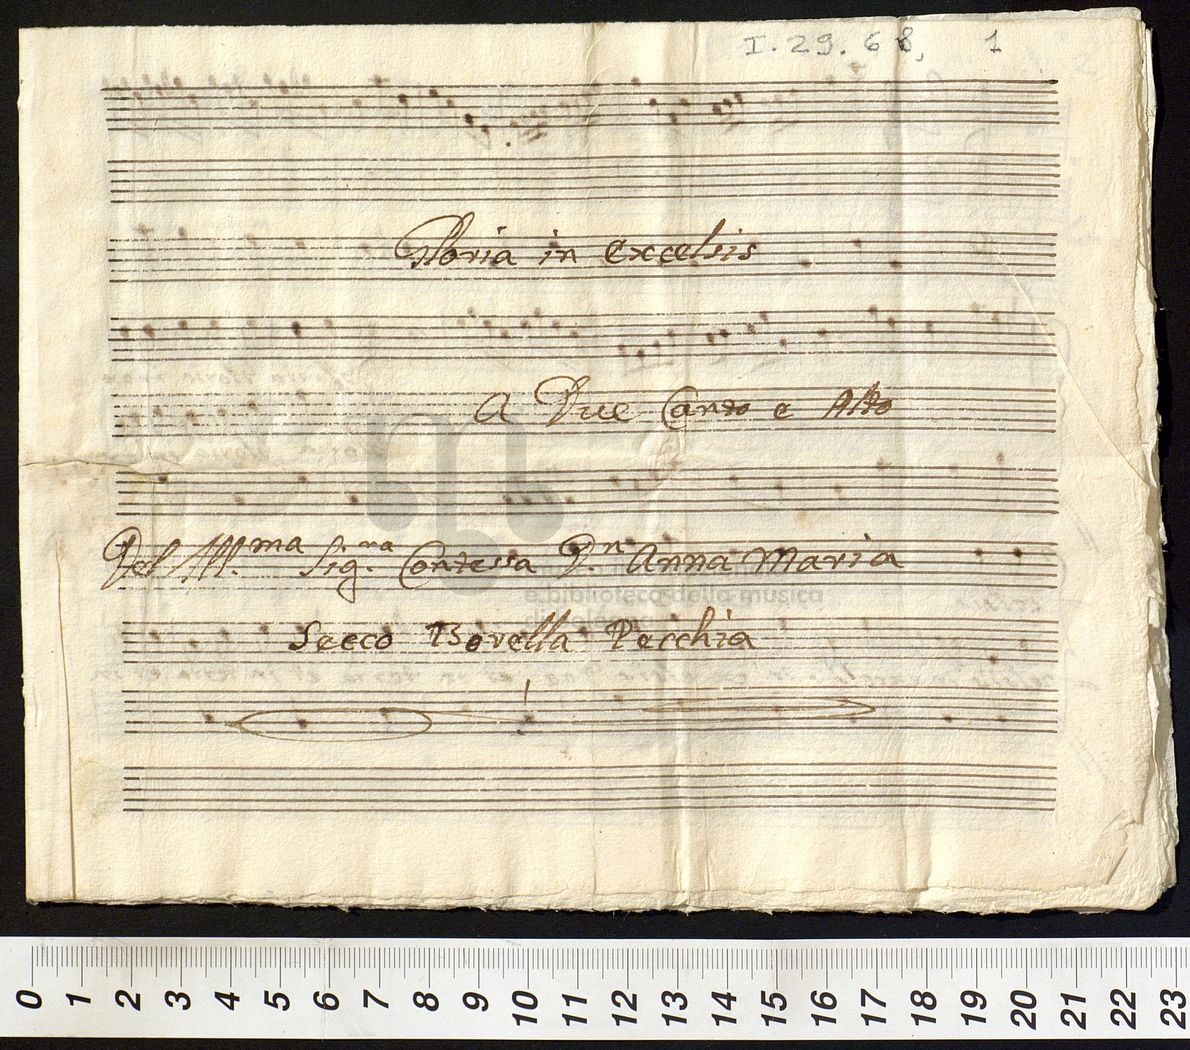 I. 29. 68, 1
Gloria in excelsis
A Due Canto e Alto
Del Ill.ma Sig.na Contessa D.n Anna Maria
e biblioteca della musica
Secco Borella Pecchia
0 1 2 3 4 5 6 7 8 9 10 11 12 13 14 15 16 17 18 19 20 21 22 23